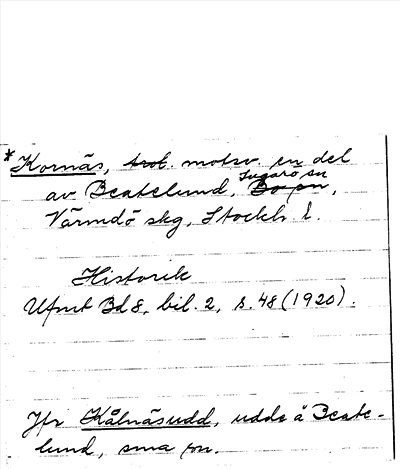 *Kornäs, trol. motsv. en del
av Beatelund, Ingarö sn,
Värmdö skg, Stockh. l.
Historik
Ufmt Bd 8, bil. 2, s. 48 (1920).
Jfr Kålnäsudd, udde å Beate-
lund, sma sn.